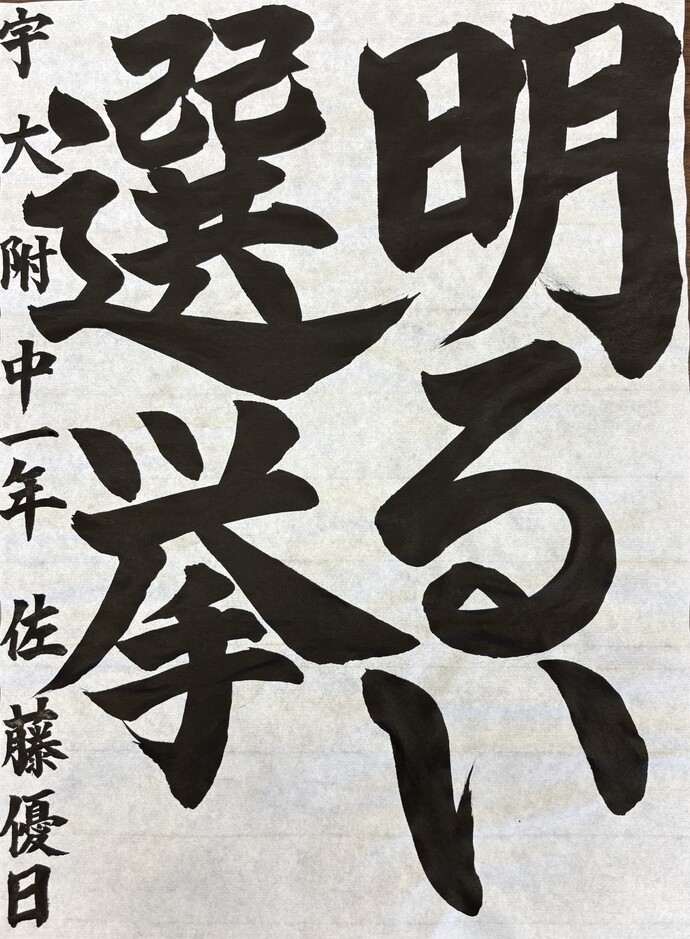 明るい
選挙
宇大附中一年 佐藤優日